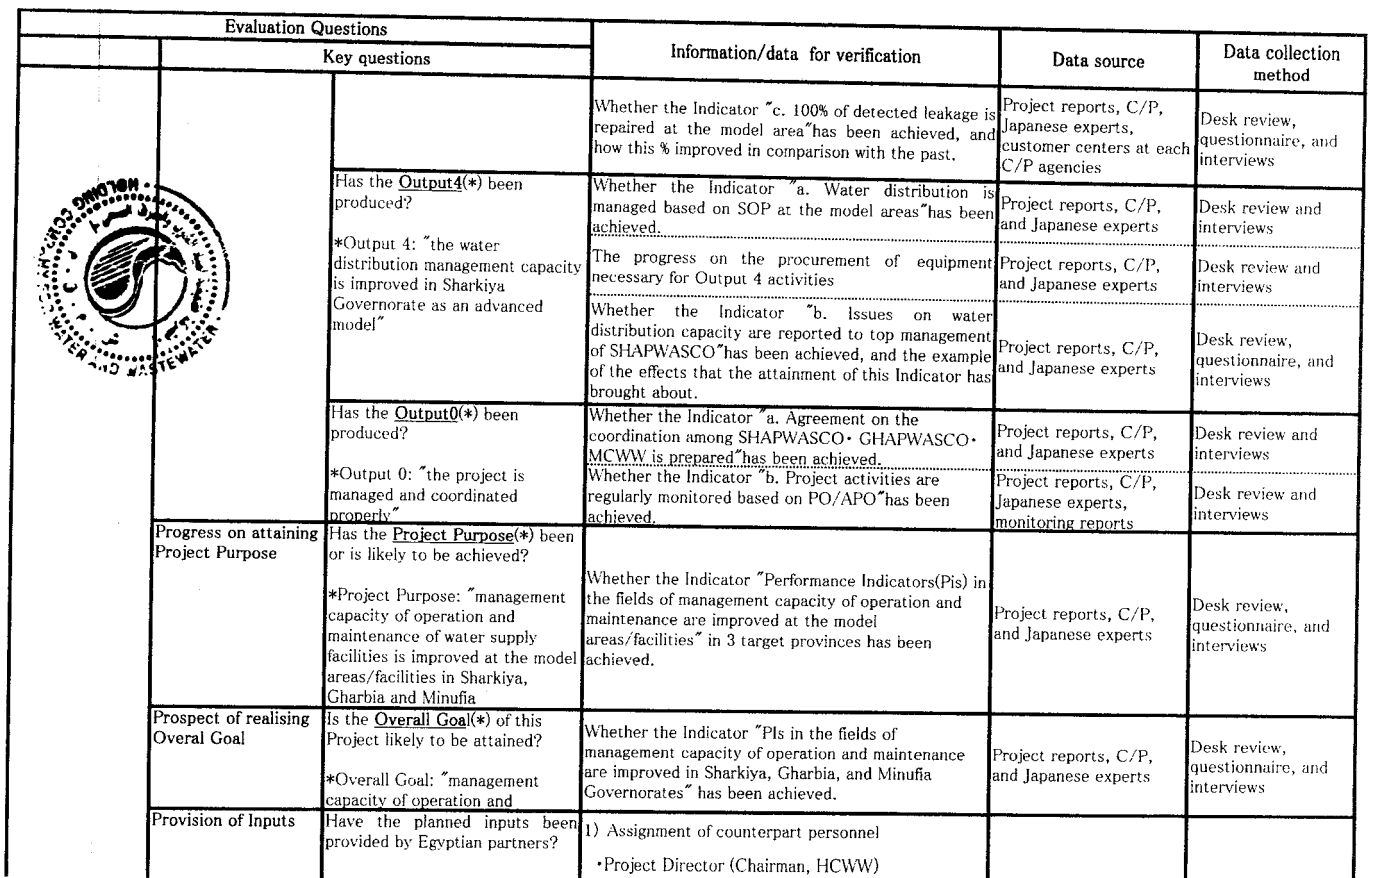 Evaluation Questions
Key questions
Information/data for verification
Data source
Data collection
method
Whether the Indicator "c. 100% of detected leakage is
repaired at the model area"has been achieved, and
how this % improved in comparison with the past.
Project reports, C/P,
Japanese experts,
customer centers at each
C/P agencies
Desk review,
questionnaire, and
interviews
Has the Output4(*) been
produced?
*Output 4: "the water
distribution management capacity
is improved in Sharkiya
Governorate as an advanced
model"
Whether the Indicator "a. Water distribution is
managed based on SOP at the model areas"has been
achieved.
Project reports, C/P,
and Japanese experts
Desk review and
interviews
The progress on the procurement of equipment
necessary for Output 4 activities
Project reports, C/P,
and Japanese experts
Desk review and
interviews
Whether the Indicator "b. Issues on water
distribution capacity are reported to top management
of SHAPWASCO"has been achieved, and the example
of the effects that the attainment of this Indicator has
brought about.
Project reports, C/P,
and Japanese experts
Desk review,
questionnaire, and
interviews
Has the Output0(*) been
produced?
*Output 0: "the project is
managed and coordinated
properly"
Whether the Indicator "a. Agreement on the
coordination among SHAPWASCO・ GHAPWASCO・
MCWW is prepared"has been achieved.
Project reports, C/P,
and Japanese experts
Desk review and
interviews
Whether the Indicator "b. Project activities are
regularly monitored based on PO/APO"has been
achieved.
Project reports, C/P,
Japanese experts,
monitoring reports
Desk review and
interviews
Progress on attaining
Project Purpose
Has the Project Purpose(*) been
or is likely to be achieved?
*Project Purpose: "management
capacity of operation and
maintenance of water supply
facilities is improved at the model
areas/facilities in Sharkiya,
Gharbia and Minufia
Whether the Indicator "Performance Indicators(Pis) in
the fields of management capacity of operation and
maintenance are improved at the model
areas/facilities" in 3 target provinces has been
achieved.
Project reports, C/P,
and Japanese experts
Desk review,
questionnaire, and
interviews
Prospect of realising
Overal Goal
Is the Overall Goal(*) of this
Project likely to be attained?
*Overall Goal: "management
capacity of operation and
Whether the Indicator "PIs in the fields of
management capacity of operation and maintenance
are improved in Sharkiya, Gharbia, and Minufia
Governorates" has been achieved.
Project reports, C/P,
and Japanese experts
Desk review,
questionnaire, and
interviews
Provision of Inputs
Have the planned inputs been
provided by Egyptian partners?
1) Assignment of counterpart personnel
・Project Director (Chairman, HCWW)
HOLDING
WATER AND WASTEWATER